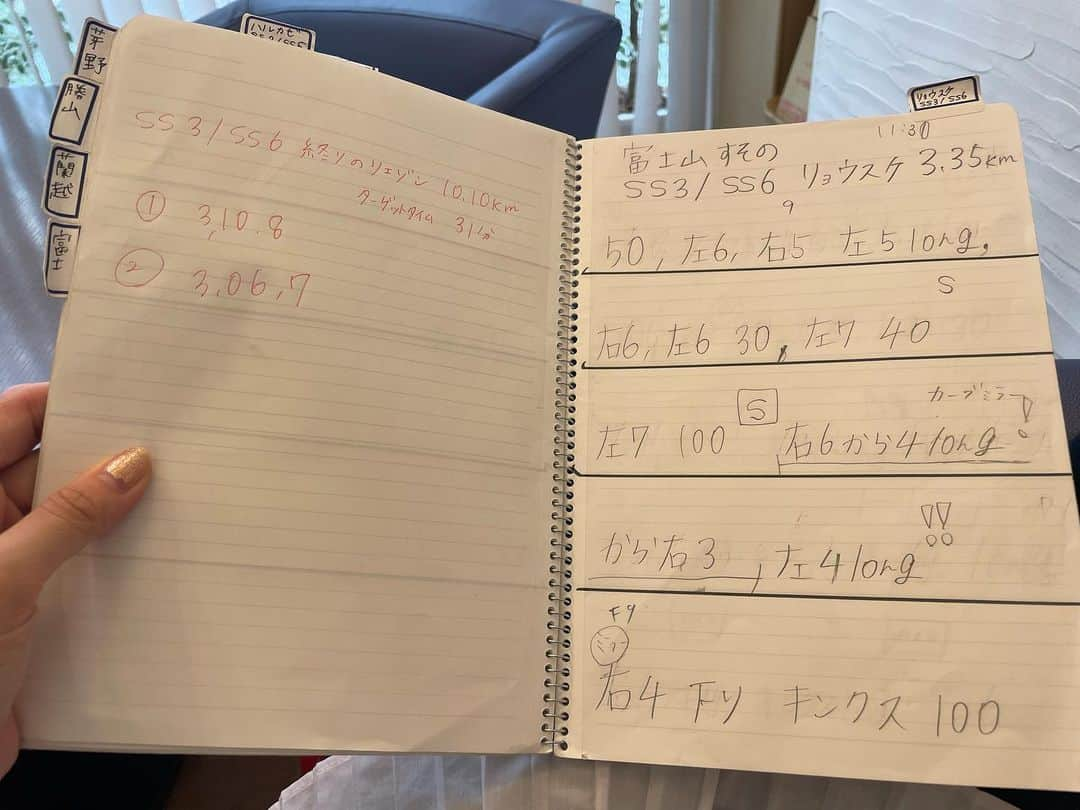 茅野
勝山
蘭越
富士
ハルカゼ
SS2/SS5
SS3/SS6 終りのリエゾン 10.10km
ターゲットタイム 31分
① 3,10.8
② 3,06,7
リョウスケ
SS3/SS6
11:30
富士山すその
SS3/SS6 リョウスケ 3.35km
9
50, 左6, 右5 左5 long,
S
右6, 左6 30, 左7 40
カーブミラー
左7 100 S 右6から4 long !
から右3, 左4 long !!
ミラー
右4 下り キンクス 100